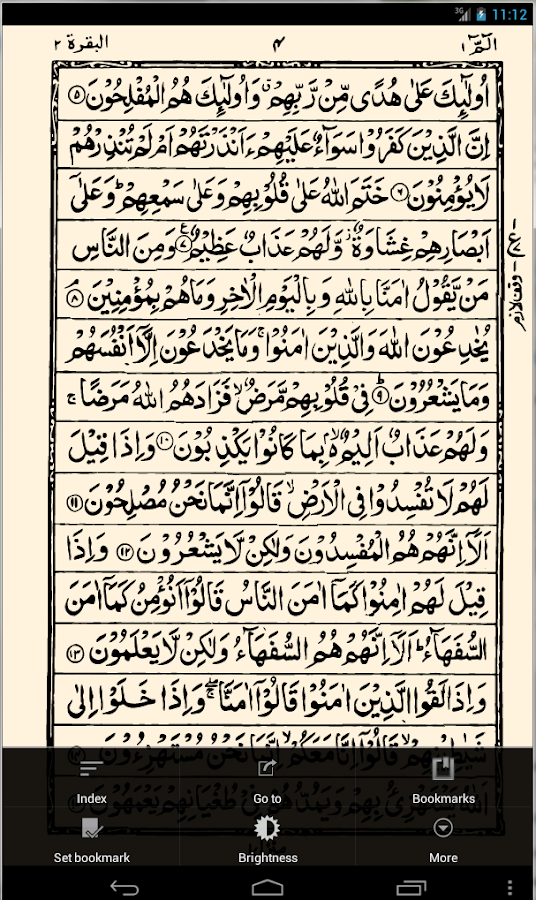 3G 11:12
الٓمّٓ ١ ٤ البقرة ٢
اُولٰٓئِكَ عَلٰى هُدًى مِّنْ رَّبِّهِمْ ۙ وَاُولٰٓئِكَ هُمُ الْمُفْلِحُوْنَ ۝٥
اِنَّ الَّذِيْنَ كَفَرُوْا سَوَآءٌ عَلَيْهِمْ ءَاَنْذَرْتَهُمْ اَمْ لَمْ تُنْذِرْهُمْ
لَا يُؤْمِنُوْنَ ۝٦ خَتَمَ اللّٰهُ عَلٰى قُلُوْبِهِمْ وَعَلٰى سَمْعِهِمْ ؕ وَعَلٰٓى
اَبْصَارِهِمْ غِشَاوَةٌ ۫ وَّلَهُمْ عَذَابٌ عَظِيْمٌ ۝٧ وَمِنَ النَّاسِ
مَنْ يَّقُوْلُ اٰمَنَّا بِاللّٰهِ وَبِالْيَوْمِ الْاٰخِرِ وَمَا هُمْ بِمُؤْمِنِيْنَ ۝٨
يُخٰدِعُوْنَ اللّٰهَ وَالَّذِيْنَ اٰمَنُوْا ۚ وَمَا يَخْدَعُوْنَ اِلَّآ اَنْفُسَهُمْ
وَمَا يَشْعُرُوْنَ ۝٩ فِيْ قُلُوْبِهِمْ مَّرَضٌ ۙ فَزَادَهُمُ اللّٰهُ مَرَضًا ۚ
وَلَهُمْ عَذَابٌ اَلِيْمٌ ۢ ۙ بِمَا كَانُوْا يَكْذِبُوْنَ ۝١٠ وَاِذَا قِيْلَ
لَهُمْ لَا تُفْسِدُوْا فِي الْاَرْضِ ۙ قَالُوْٓا اِنَّمَا نَحْنُ مُصْلِحُوْنَ ۝١١
اَلَآ اِنَّهُمْ هُمُ الْمُفْسِدُوْنَ وَلٰكِنْ لَّا يَشْعُرُوْنَ ۝١٢ وَاِذَا
قِيْلَ لَهُمْ اٰمِنُوْا كَمَآ اٰمَنَ النَّاسُ قَالُوْٓا اَنُؤْمِنُ كَمَآ اٰمَنَ
السُّفَهَآءُ ؕ اَلَآ اِنَّهُمْ هُمُ السُّفَهَآءُ وَلٰكِنْ لَّا يَعْلَمُوْنَ ۝١٣
وَاِذَا لَقُوا الَّذِيْنَ اٰمَنُوْا قَالُوْٓا اٰمَنَّا ۖۚ وَاِذَا خَلَوْا اِلٰى
شَيٰطِيْنِهِمْ ۙ قَالُوْٓا اِنَّا مَعَكُمْ ۙ اِنَّمَا نَحْنُ مُسْتَهْزِءُوْنَ ۝١٤
اَللّٰهُ يَسْتَهْزِئُ بِهِمْ وَيَمُدُّهُمْ فِيْ طُغْيَانِهِمْ يَعْمَهُوْنَ ۝١٥
ع
وقف لازم
Index Go to Bookmarks
Set bookmark Brightness More